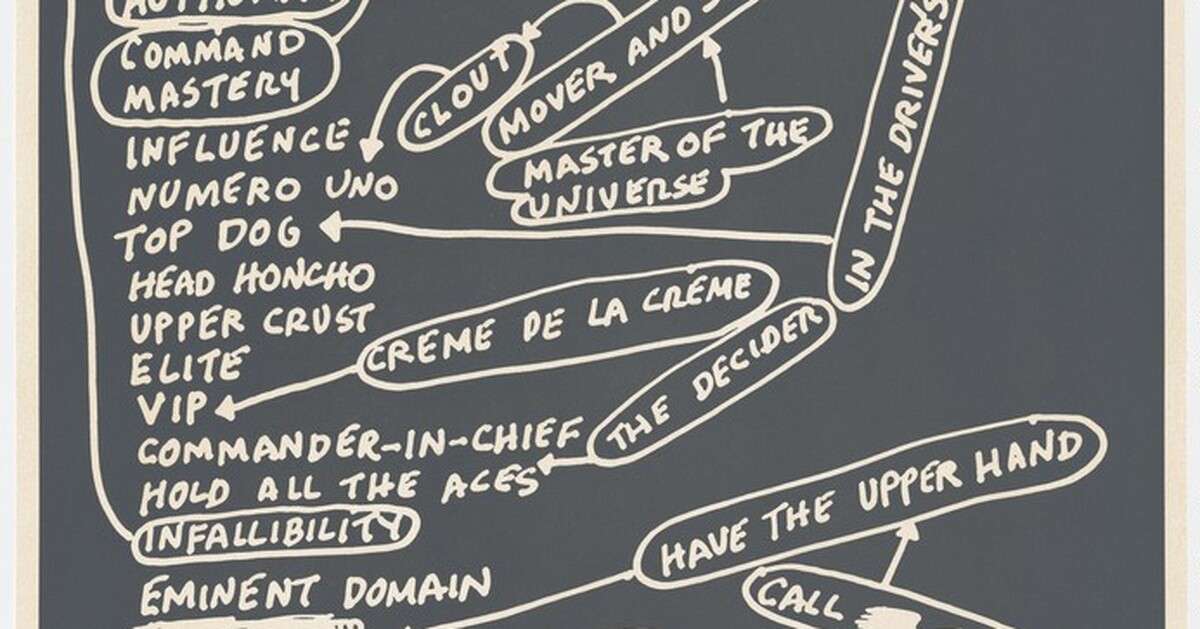 COMMAND
MASTERY
INFLUENCE
NUMERO UNO
TOP DOG
HEAD HONCHO
UPPER CRUST
ELITE
VIP
COMMANDER-IN-CHIEF
HOLD ALL THE ACES
INFALLIBILITY
EMINENT DOMAIN
CLOUT
MOVER AND
MASTER OF THE
UNIVERSE
IN THE DRIVER'S
CRÈME DE LA CRÈME
THE DECIDER
HAVE THE UPPER HAND
CALL